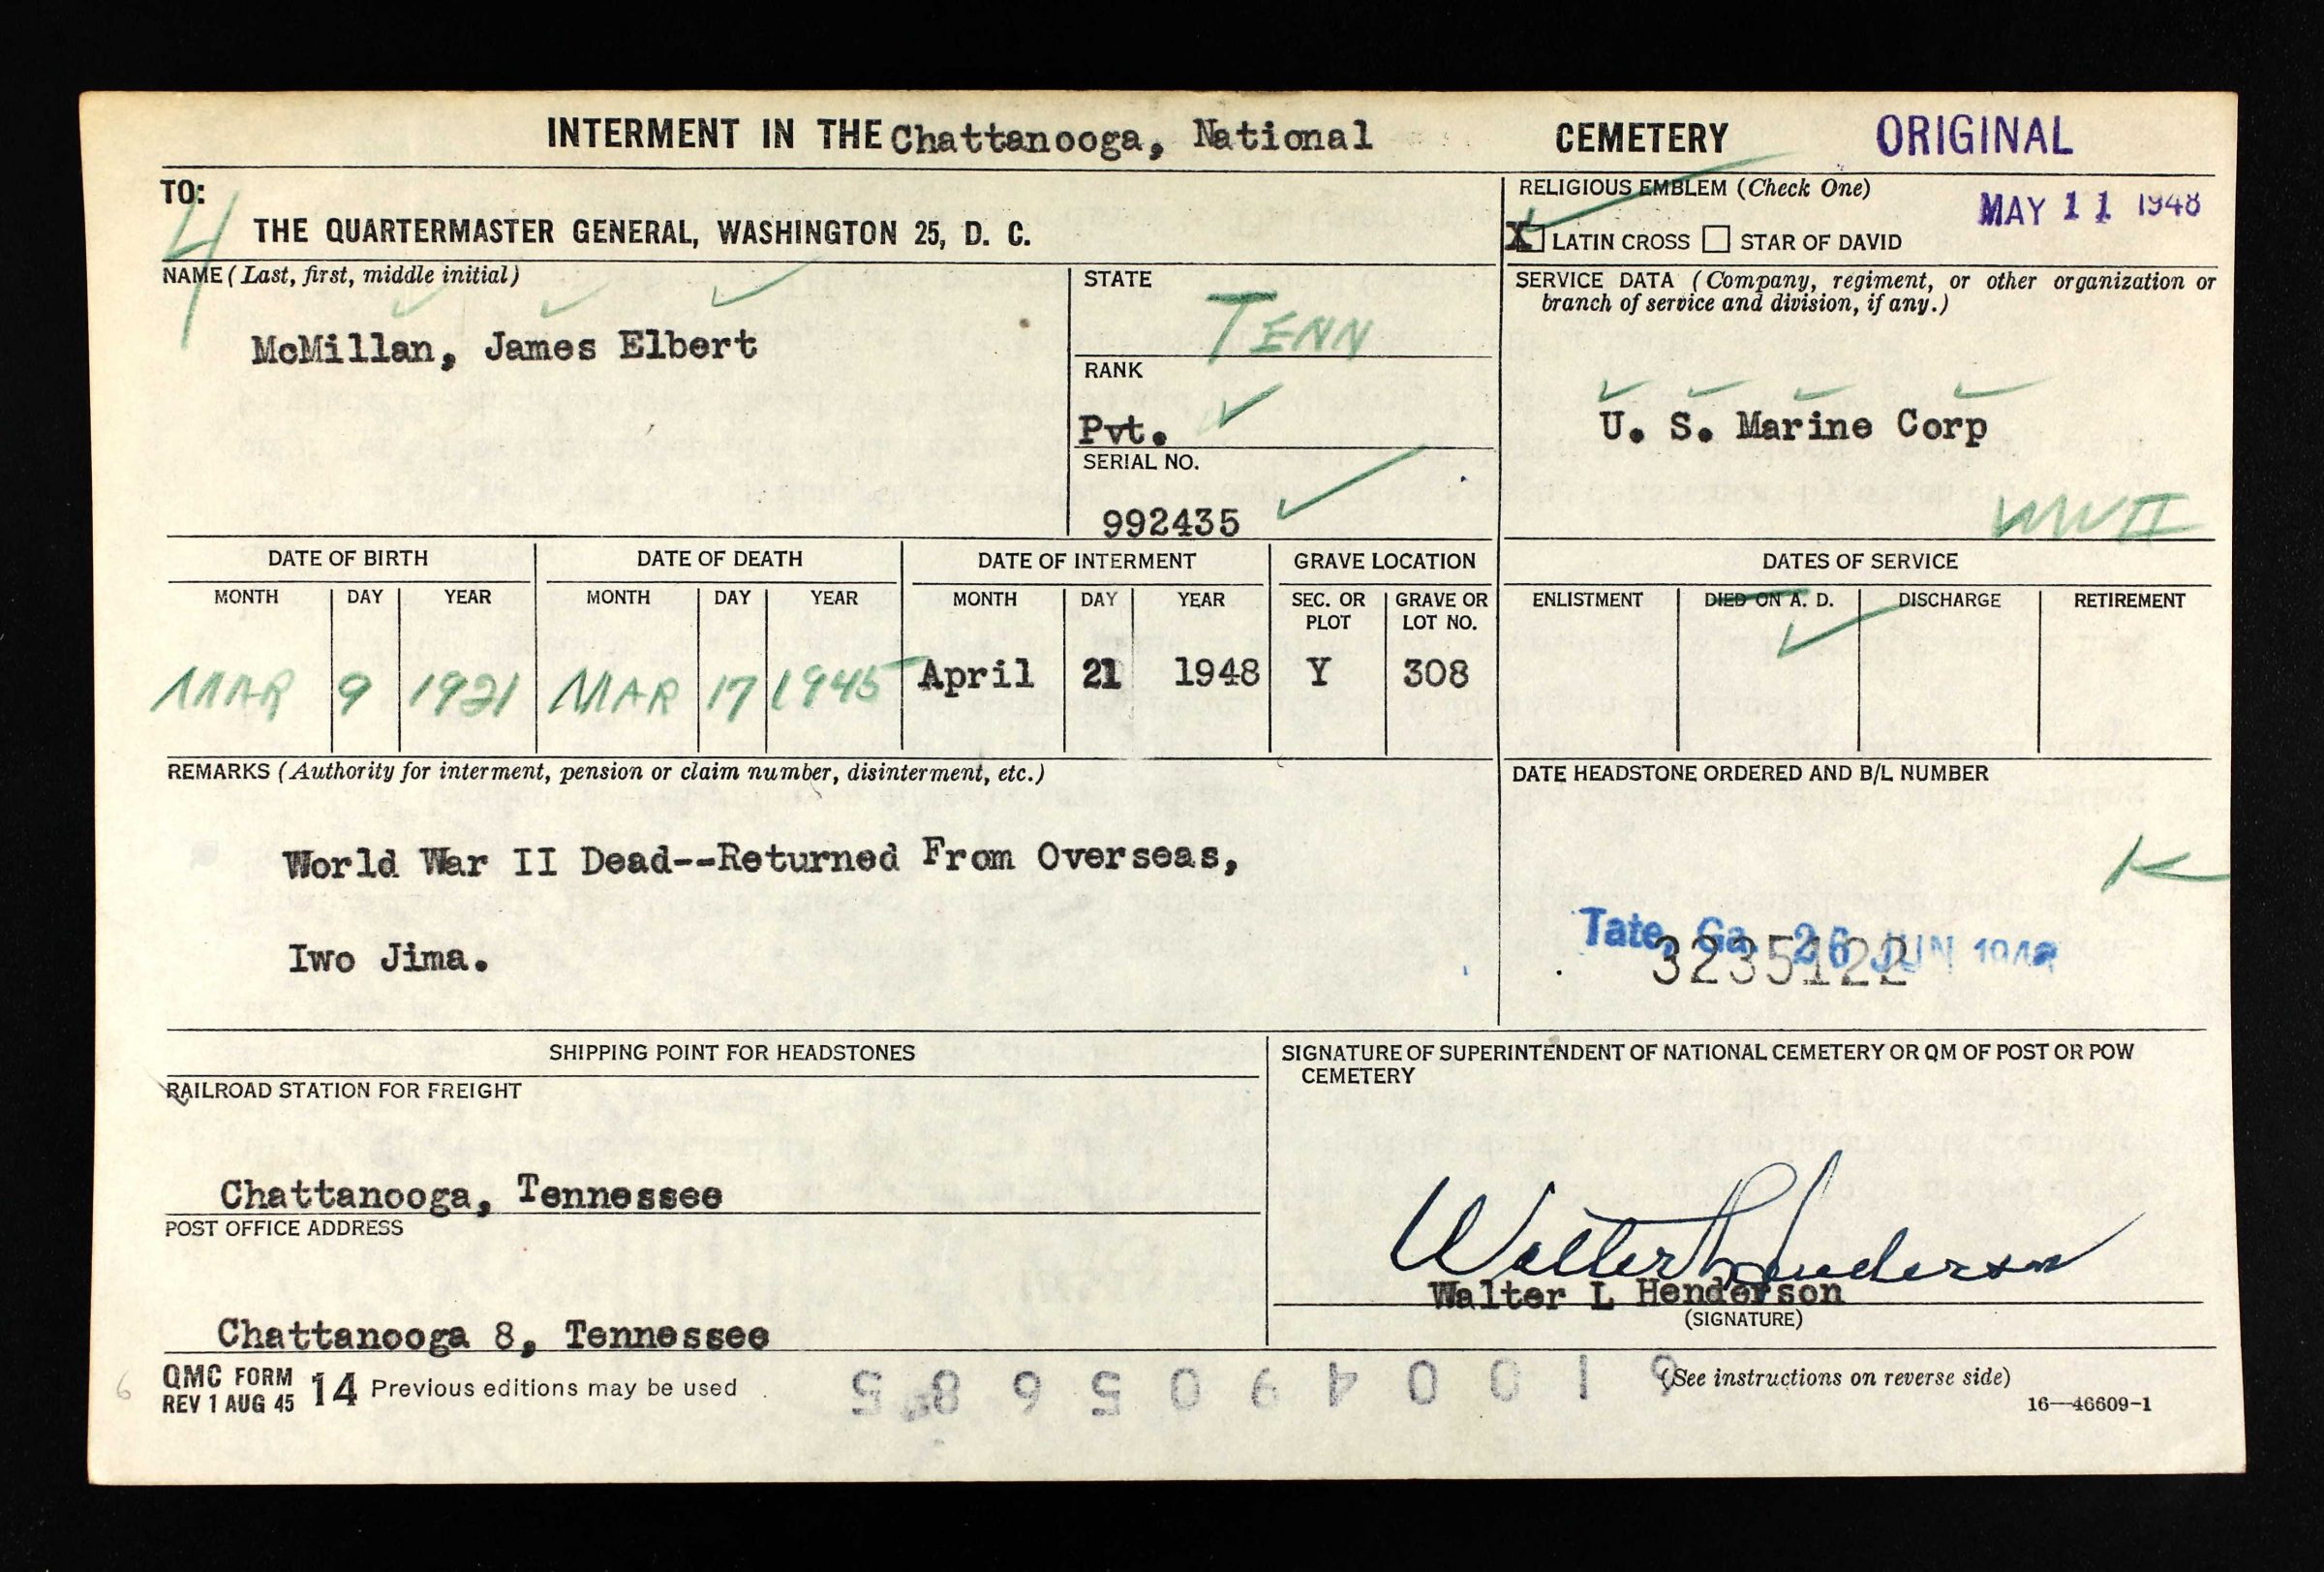 INTERMENT IN THE Chattanooga, National CEMETERY ORIGINAL
TO:
4
THE QUARTERMASTER GENERAL, WASHINGTON 25, D. C.
RELIGIOUS EMBLEM (Check One)
MAY 11 1948
X LATIN CROSS STAR OF DAVID
NAME (Last, first, middle initial)
McMillan, James Elbert
STATE
TENN
RANK
Pvt.
SERIAL NO.
992435
SERVICE DATA (Company, regiment, or other organization or
branch of service and division, if any.)
U. S. Marine Corp
WWII
DATE OF BIRTH DATE OF DEATH DATE OF INTERMENT GRAVE LOCATION DATES OF SERVICE
MONTH DAY YEAR MONTH DAY YEAR MONTH DAY YEAR SEC. OR PLOT GRAVE OR LOT NO. ENLISTMENT DIED ON A. D. DISCHARGE RETIREMENT
MAR 9 1921 MAR 17 1945 April 21 1948 Y 308
REMARKS (Authority for interment, pension or claim number, disinterment, etc.)
World War II Dead--Returned From Overseas,
Iwo Jima.
DATE HEADSTONE ORDERED AND B/L NUMBER
K
Tate, Ga. 26 JUN 1948
3235122
SHIPPING POINT FOR HEADSTONES
RAILROAD STATION FOR FREIGHT
Chattanooga, Tennessee
POST OFFICE ADDRESS
Chattanooga 8, Tennessee
SIGNATURE OF SUPERINTENDENT OF NATIONAL CEMETERY OR QM OF POST OR POW
CEMETERY
Walter L Henderson
Walter L Henderson
(SIGNATURE)
QMC FORM 14 Previous editions may be used
REV 1 AUG 45
(See instructions on reverse side)
16—46609-1
6